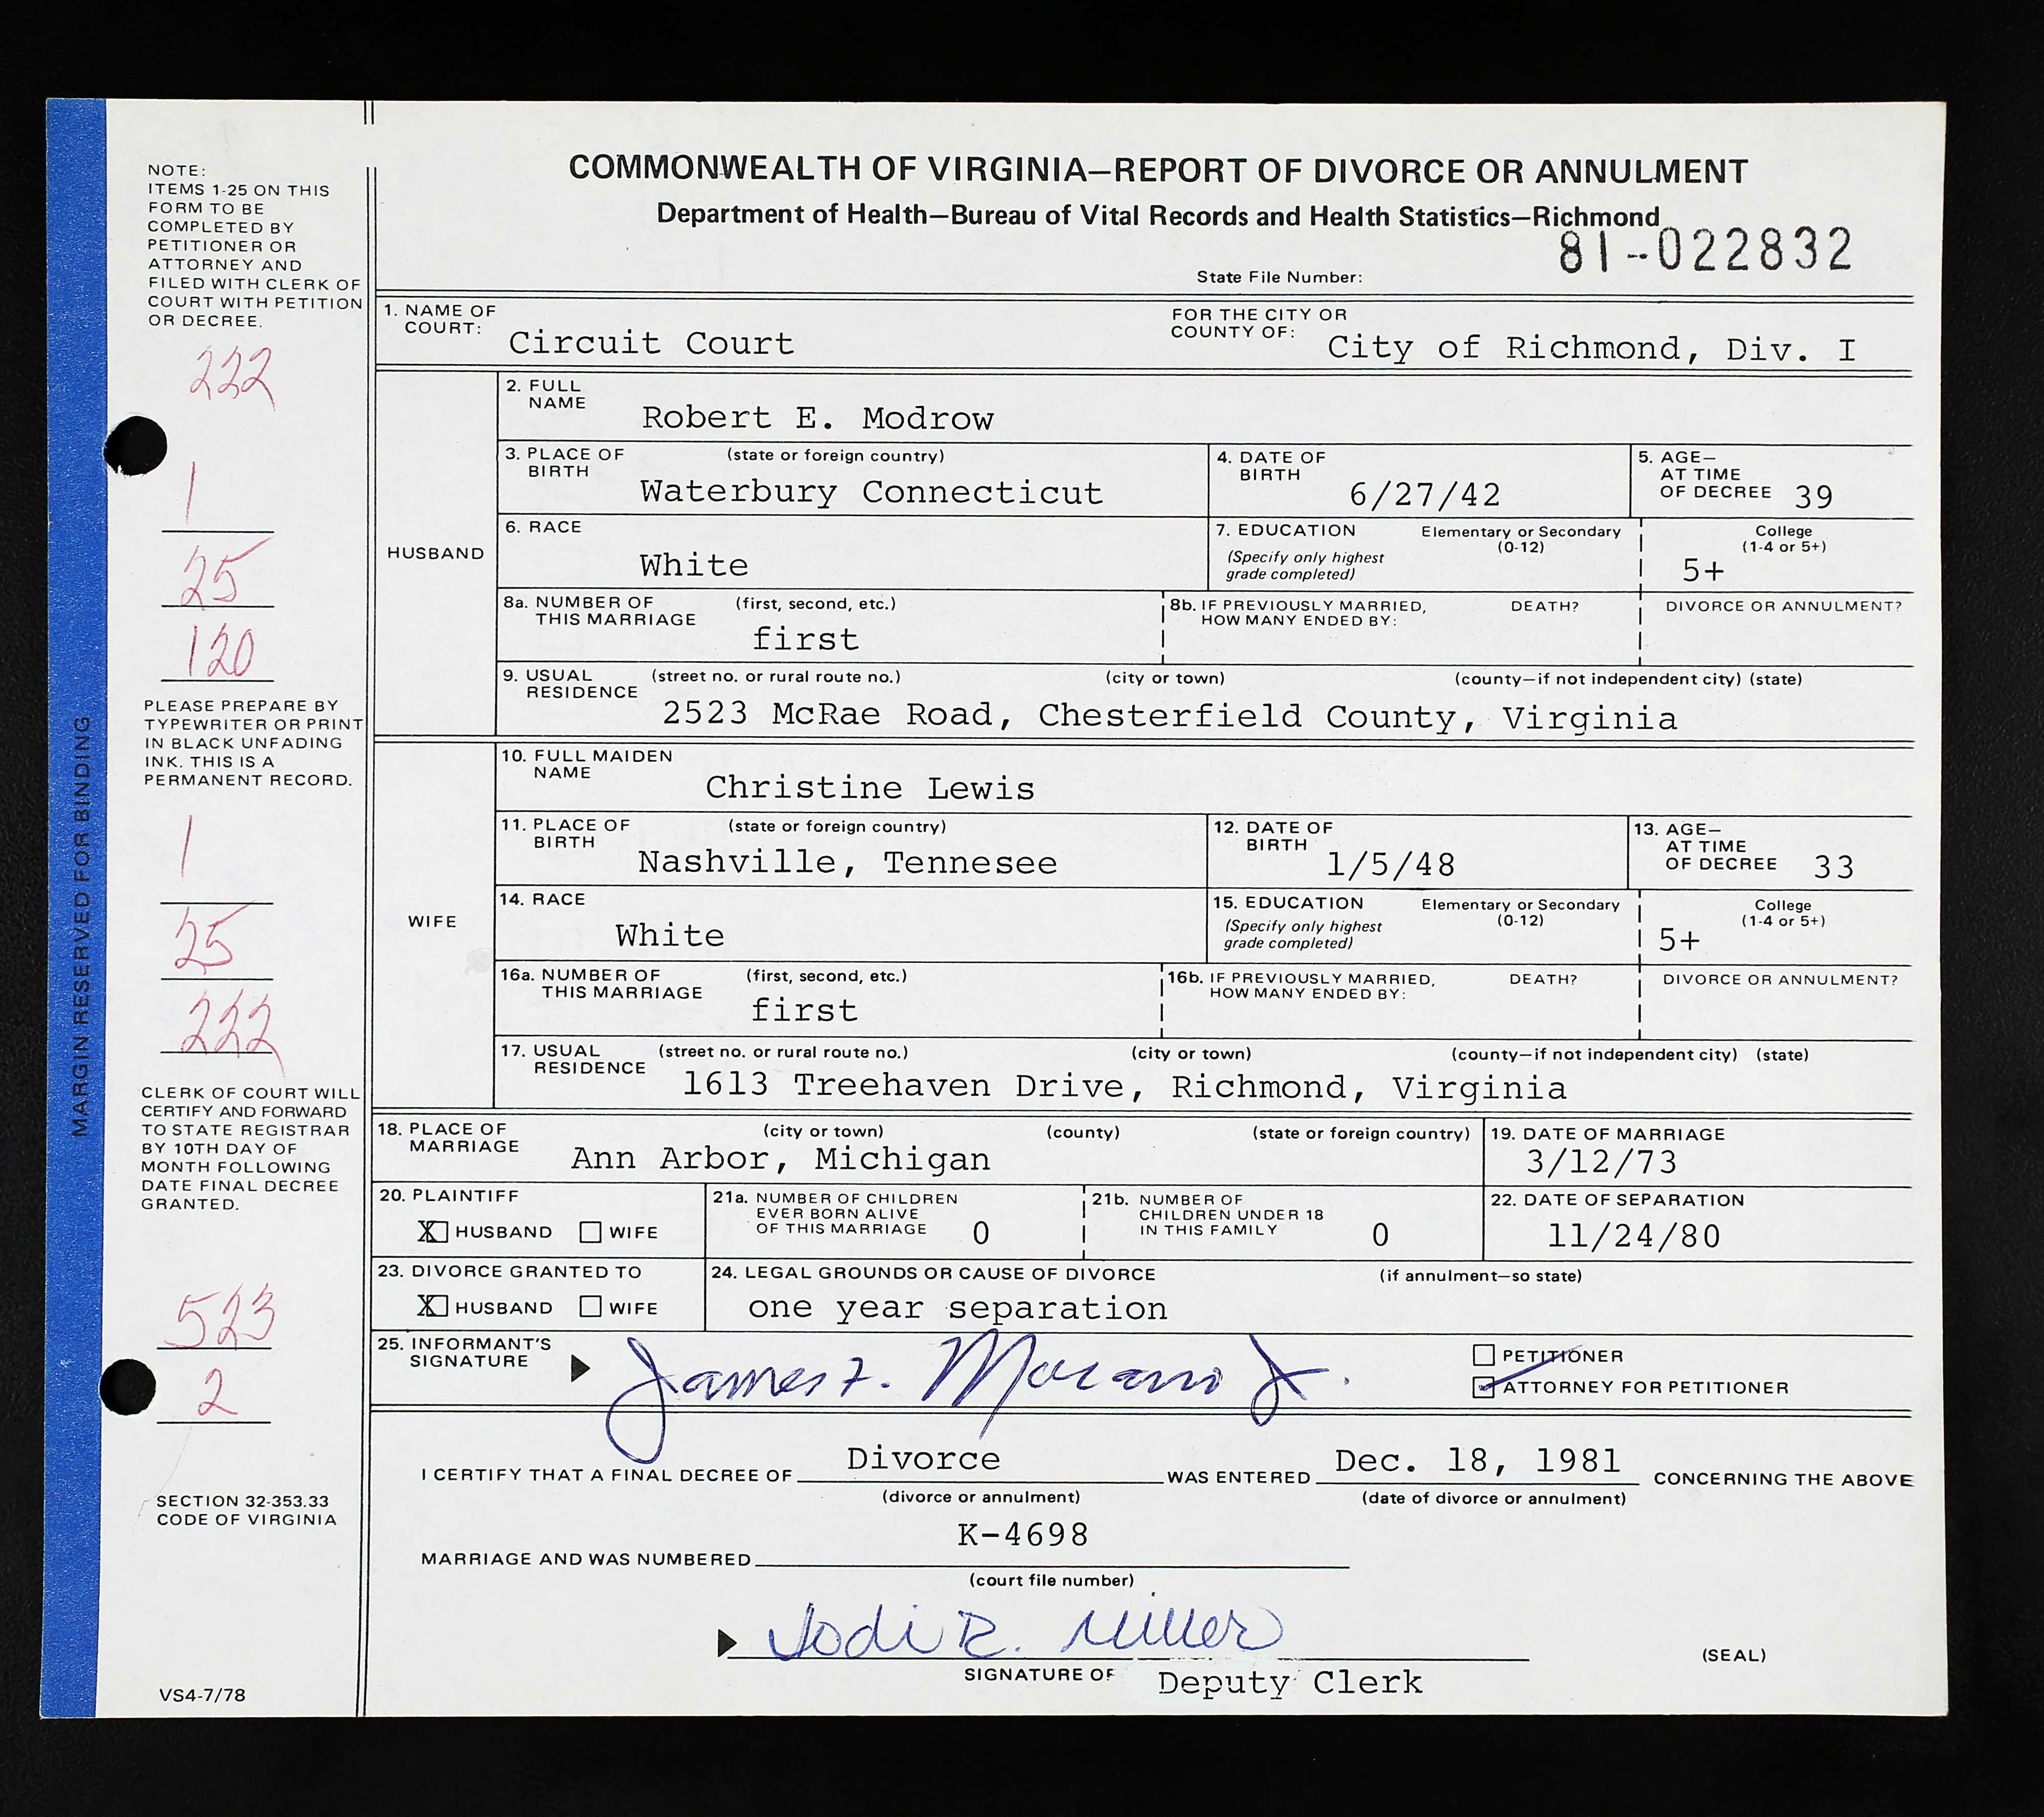 COMMONWEALTH OF VIRGINIA—REPORT OF DIVORCE OR ANNULMENT
Department of Health—Bureau of Vital Records and Health Statistics—Richmond
State File Number: 81--022832
MARGIN RESERVED FOR BINDING
NOTE:
ITEMS 1-25 ON THIS
FORM TO BE
COMPLETED BY
PETITIONER OR
ATTORNEY AND
FILED WITH CLERK OF
COURT WITH PETITION
OR DECREE.
222
1
25
120
PLEASE PREPARE BY
TYPEWRITER OR PRINT
IN BLACK UNFADING
INK. THIS IS A
PERMANENT RECORD.
1
25
222
CLERK OF COURT WILL
CERTIFY AND FORWARD
TO STATE REGISTRAR
BY 10TH DAY OF
MONTH FOLLOWING
DATE FINAL DECREE
GRANTED.
523
2
SECTION 32-353.33
CODE OF VIRGINIA
VS4-7/78
1. NAME OF COURT: Circuit Court FOR THE CITY OR COUNTY OF: City of Richmond, Div. I
HUSBAND
2. FULL NAME Robert E. Modrow
3. PLACE OF BIRTH (state or foreign country) Waterbury Connecticut 4. DATE OF BIRTH 6/27/42 5. AGE— AT TIME OF DECREE 39
6. RACE White 7. EDUCATION (Specify only highest grade completed) Elementary or Secondary (0-12) College (1-4 or 5+) 5+
8a. NUMBER OF THIS MARRIAGE (first, second, etc.) first 8b. IF PREVIOUSLY MARRIED, HOW MANY ENDED BY: DEATH? DIVORCE OR ANNULMENT?
9. USUAL RESIDENCE (street no. or rural route no.) (city or town) (county—if not independent city) (state)
2523 McRae Road, Chesterfield County, Virginia
WIFE
10. FULL MAIDEN NAME Christine Lewis
11. PLACE OF BIRTH (state or foreign country) Nashville, Tennesee 12. DATE OF BIRTH 1/5/48 13. AGE— AT TIME OF DECREE 33
14. RACE White 15. EDUCATION (Specify only highest grade completed) Elementary or Secondary (0-12) College (1-4 or 5+) 5+
16a. NUMBER OF THIS MARRIAGE (first, second, etc.) first 16b. IF PREVIOUSLY MARRIED, HOW MANY ENDED BY: DEATH? DIVORCE OR ANNULMENT?
17. USUAL RESIDENCE (street no. or rural route no.) (city or town) (county—if not independent city) (state)
1613 Treehaven Drive, Richmond, Virginia
18. PLACE OF MARRIAGE (city or town) (county) (state or foreign country) Ann Arbor, Michigan 19. DATE OF MARRIAGE 3/12/73
20. PLAINTIFF X HUSBAND WIFE 21a. NUMBER OF CHILDREN EVER BORN ALIVE OF THIS MARRIAGE 0 21b. NUMBER OF CHILDREN UNDER 18 IN THIS FAMILY 0 22. DATE OF SEPARATION 11/24/80
23. DIVORCE GRANTED TO X HUSBAND WIFE 24. LEGAL GROUNDS OR CAUSE OF DIVORCE (if annulment—so state) one year separation
25. INFORMANT'S SIGNATURE James F. Morano Jr. PETITIONER
ATTORNEY FOR PETITIONER
I CERTIFY THAT A FINAL DECREE OF Divorce WAS ENTERED Dec. 18, 1981 CONCERNING THE ABOVE
(divorce or annulment) (date of divorce or annulment)
MARRIAGE AND WAS NUMBERED K-4698
(court file number)
Jodi R. Miller
SIGNATURE OF Deputy Clerk (SEAL)